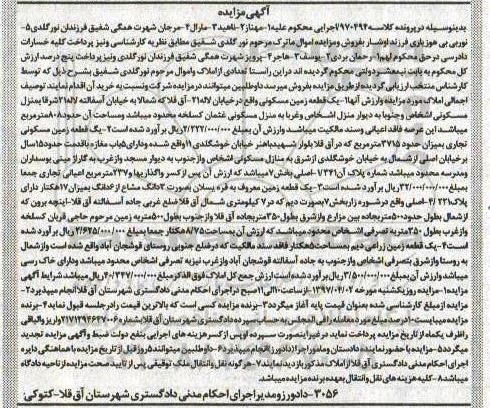 آگهی مزایده
بدینوسیله در پرونده کلاسه ۹۷۰۴۹۴ اجرایی محکوم علیه ۱-مهناز ۲-ناهید ۳-مارال ۴-مرجان شهرت همگی شفیق فرزندان نورگلدی ۵-
نوربی بی هوزیاری فرزند اوشار بفروش و مزایده اموال ماترک مرحوم نورگلدی شفیق مطابق نظریه کارشناسی ونیز پرداخت کلیه خسارات
دادرسی در حق محکوم لهم ۱-رحمان بردی ۲-یوسف ۳-هاجر ۴-پرویز شهرت همگی شفیق فرزندان نورگلدی ونیز پرداخت پنج درصد ارزش
کل محکوم به بابت نیم عشر دولتی محکوم گردیده اند در این راستا تعدادی از املاک واموال مرحوم نورگلدی شفیق بشرح ذیل که توسط
کارشناس منتخب ارزیابی گردیده از طریق مزایده بفروش میرسد داوطلبین میتوانند در مزایده شرکت ونسبت به خرید آن اقدام نمایند توصیف
اجمالی املاک مورد مزایده وارزش آنها: ۱-یک قطعه زمین مسکونی واقع در خیابان لاله ۲۱ آق قلا که شمالا به خیابان آسفالته لاله ۲۱ شرقا بمنزل
مسکونی اشخاص وجنوبا به دیوار منزل اشخاص وغربا به منزل مسکونی عثمان کسلخه محدود میباشد ومساحت آن حدود ۸۰ مترمربع
میباشد این عرصه فاقد اعیانی وسند مالکیت میباشد وارزش آن بمبلغ ۲/۲۲۲/۰۰۰/۰۰۰ ریال برآورد شده است ۲-یک قطعه زمین مسکونی
تجاری بمیزان حدود ۳۷۱۵ مترمربع که در آق قلا بلوار شهیدباهنر خیابان خوشگلدی ۱۱ واقع شده ودارای ۵ باب مغازه باقدمت حدود ۱۵ سال
بر خیابان اصلی از شمال به خیابان خوشگلدی از شرق به منازل مسکونی اشخاص واز جنوب به دیوار مسجد واز غرب به گاراژ مینی بوسداران
محدود میباشد شماره پلاک آن ۱/۳۴۱ اصلی بخش ۷ میباشد که ارزش آن پس از کسر واگذاریها و ۲۳۷ مترمربع اعیانی تجاری جمعا
بمبلغ ۳۲/۰۰۰/۰۰۰/۰۰۰ ریال برآورد شده است ۳-یک قطعه زمین معروف به قره یسلان بصورت ۳ دانگ مشاع از ۶ دانگ بمیزان ۱۷ هکتار دارای
پلاک ۴/۲۲۱ اصلی واقع در شوره زار بخش ۷ بصورت دیم که در ۷ کیلومتری شمال آق قلا ضلع غربی جاده آسفالته آق قلا-اینچه برون که
از شمال بطول حدود ۵۰۰ متر بجاده بین مزارع واز شرق بطول ۳۵۰ متر بجاده آق قلا واز جنوب بطول ۵۰۰ متر به زمین مرحوم حاجی قربان کسلخه
واز غرب بطول ۳۵۰ متر به زمین تصرفی اشخاص محدود میباشد که ارزش آن بمساحت ۸/۷۵ هکتار جمعا بمبلغ ۲/۶۲۵/۰۰۰/۰۰۰ ریال برآورد شده
است ۴-یک قطعه زمین زراعی دیم بمساحت ۵ هکتار فاقد سند مالکیت که در ضلع جنوبی روستای قوشجان آباد واقع شده است واز شمال
به روستا واز شرق بتصرفی اشخاص واز جنوب به جاده آسفالته قوشجان آباد وغربا نیز به تصرفی اشخاص محدود میباشد ودارای خاک رسی
میباشد وارزش آن بمبلغ ۳/۵۰۰/۰۰۰/۰۰۰ ریال برآورد شده است ارزش جمع کل املاک فوق الذکر مبلغ ۴۰/۳۴۷/۰۰۰/۰۰۰ ریال میباشد شرایط آگهی
مزایده: ۱-مزایده روز یکشنبه مورخه ۱۳۹۷/۰۴/۰۲ از ساعت ۱۰ الی ۱۱ صبح در اجرای احکام مدنی دادگستری شهرستان آق قلا انجام میپذیرد ۲-
مزایده از مبلغ کارشناسی شده بعنوان قیمت پایه آغاز میگردد ۳-برنده مزایده کسی است که بالاترین قیمت را در جلسه قبول نماید ۴-برنده
مزایده میبایست ۱۰درصد مبلغ مورد معامله را فی المجلس به حساب سپرده دادگستری شهرستان آق قلا بشماره واریز والباقی
را ظرف یکماه از تاریخ مزایده پرداخت نماید در غیر اینصورت سپرده او پس از کسر هزینه های اجرایی بنفع دولت ضبط وآگهی مزایده تجدید
میگردد ۵-مزایده با حضور نماینده دادستان ومامور اجرا دادورز انجام میپذیرد ۶-داوطلبین میتوانند ۵ روز قبل از تاریخ مزایده با هماهنگی دایره
اجرای احکام مدنی دادگستری آق قلا از املاک مذکور بازدید نمایند ۷-هرگونه نقل وانتقال ملک توقیفی پس از تایید صحت مزایده از ناحیه دادگاه
میباشد ۸-کلیه هزینه های نقل وانتقال بعهده برنده مزایده میباشد.
۳۰۵۶-دادورز و مدیر اجرای احکام مدنی دادگستری شهرستان آق قلا-کتوکی: